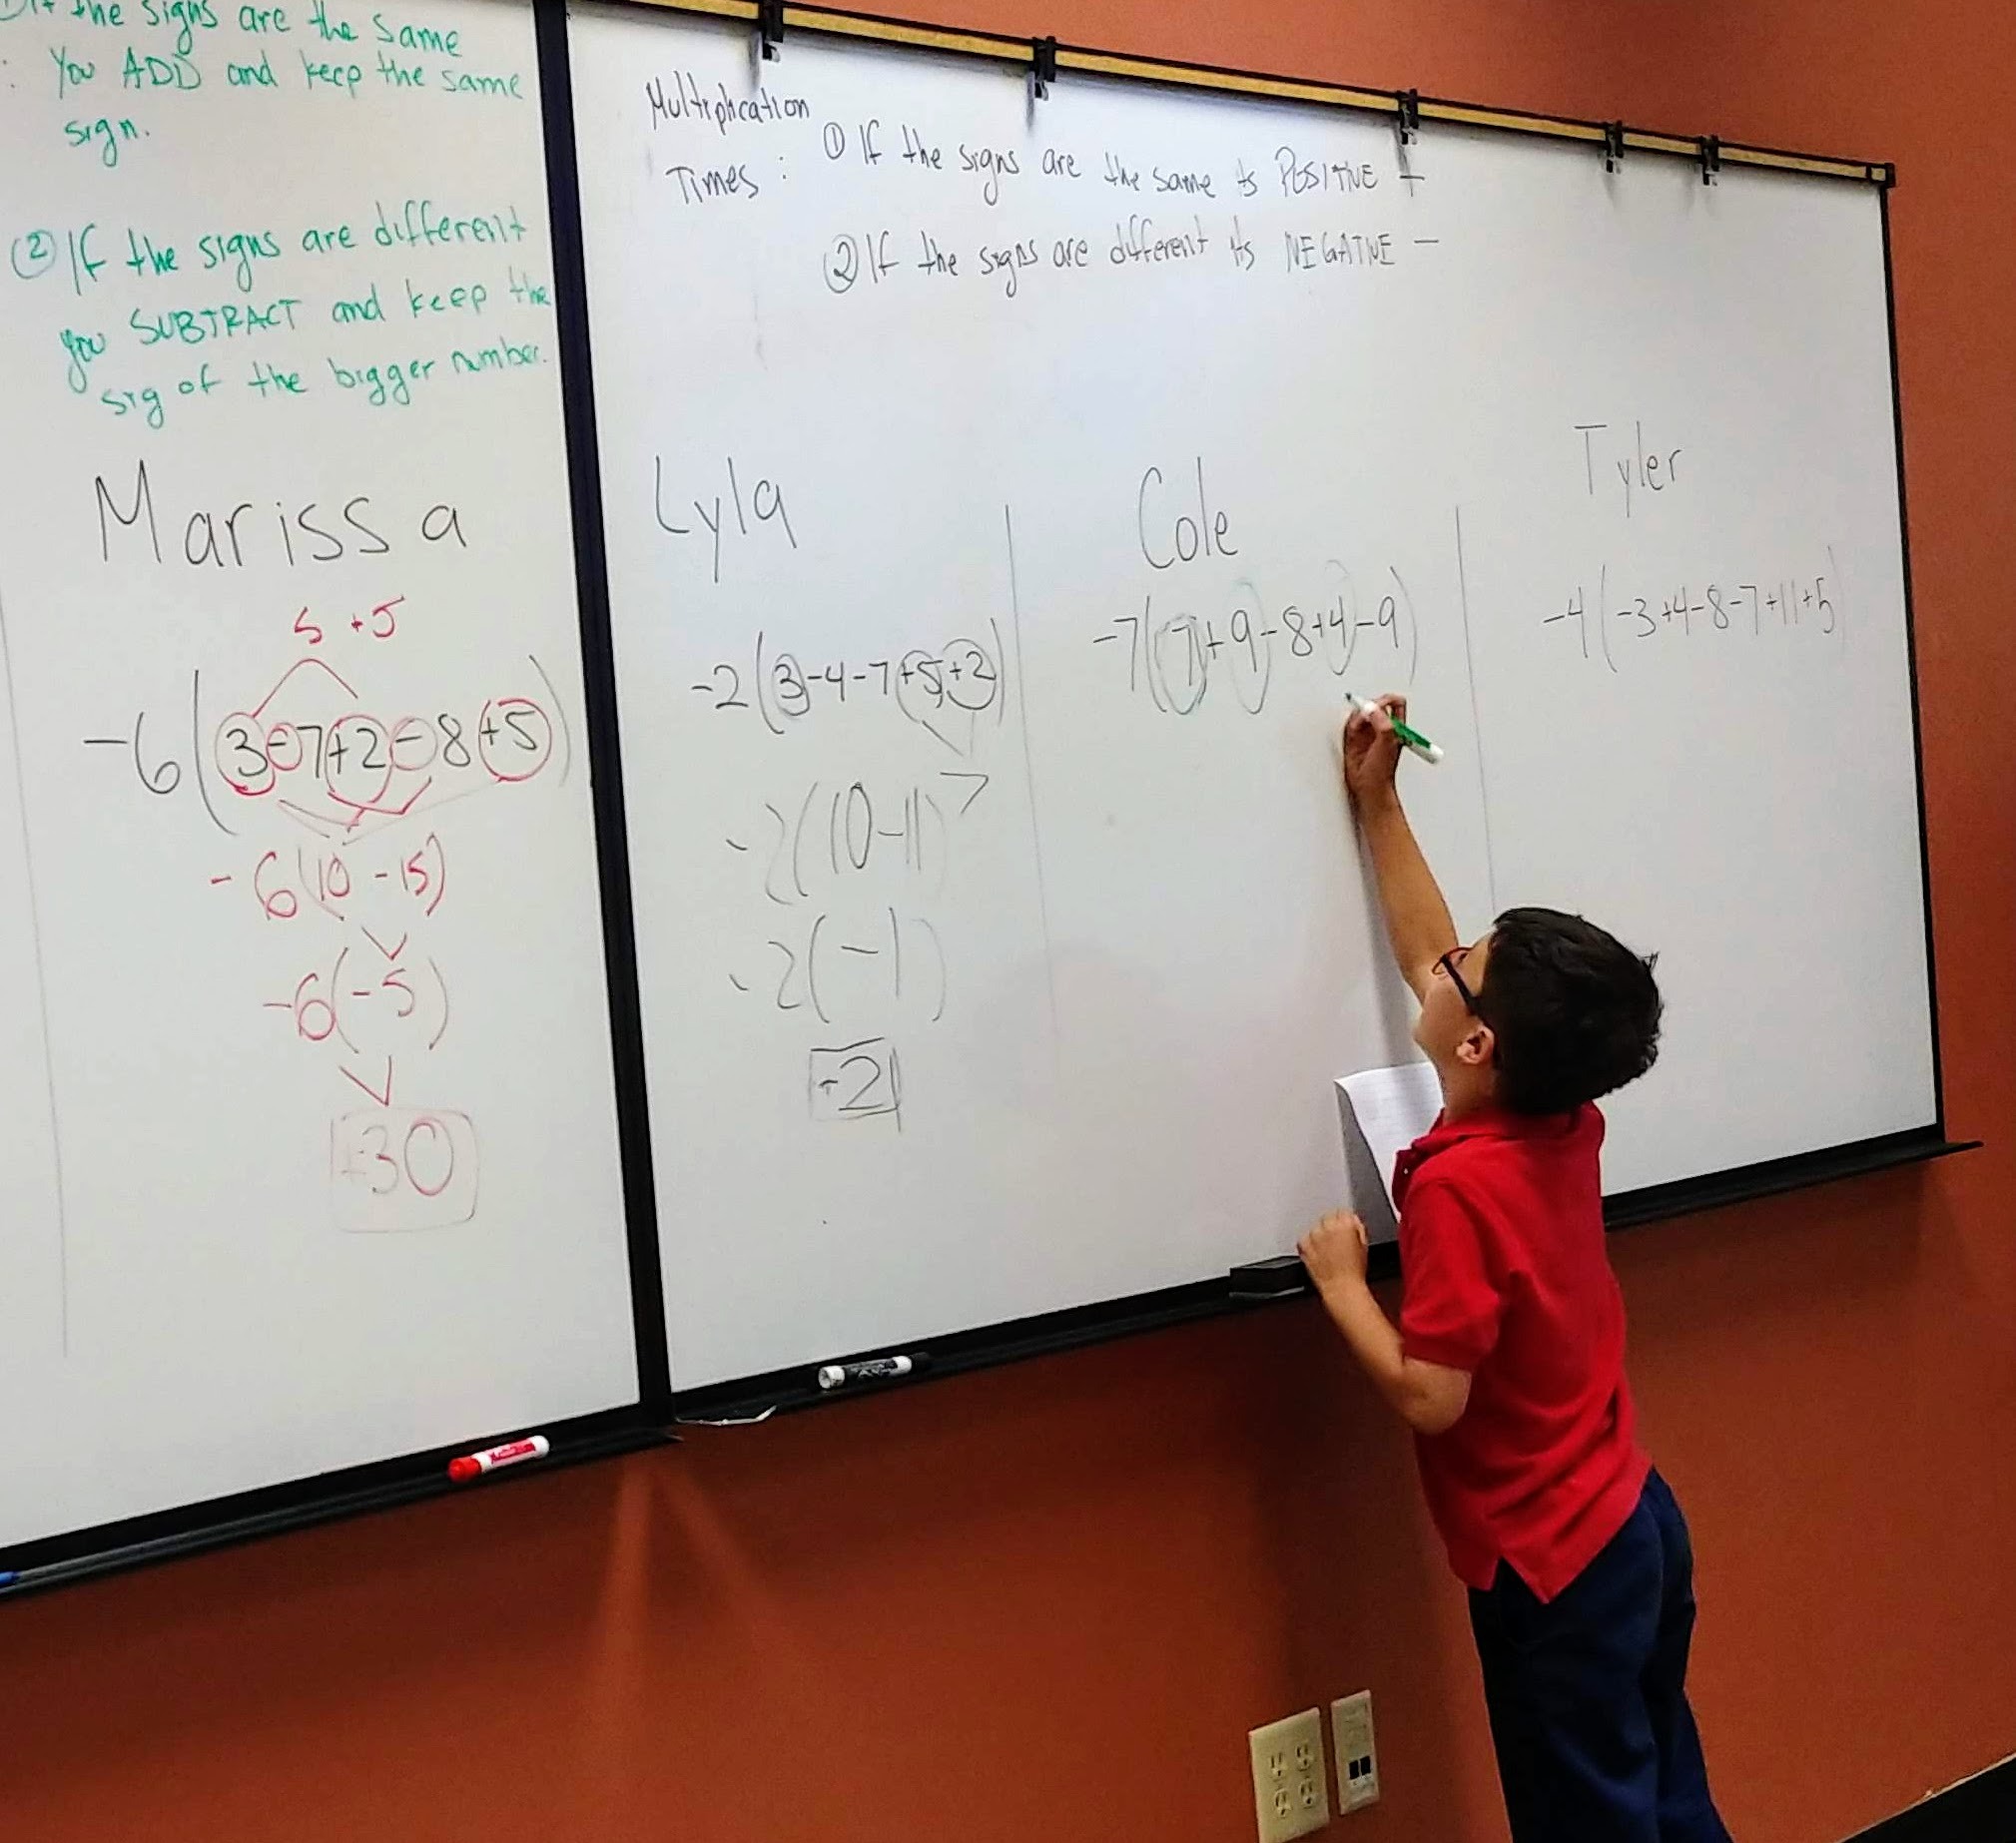 the signs are the same
: You ADD and keep the same
sign.
② If the signs are different
you SUBTRACT and keep the
sig of the bigger number.
Marissa
5 +5
-6(3-7+2-8+5)
-6(10-15)
-6(-5)
+30
Multiplication
Times : ① If the signs are the same its POSITIVE +
② If the signs are different its NEGATIVE -
Lyla
-2(3-4-7+5+2)
7
-2(10-11)
-2(-1)
+2
Cole
-7(7+9-8+4-9)
Tyler
-4(-3+4-8-7+11+5)